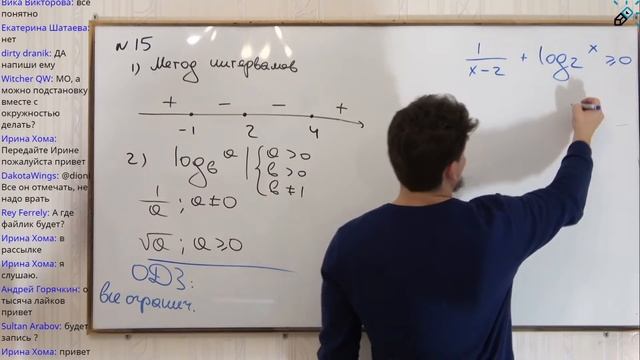 Вика Викторова: все
понятно
Екатерина Шатаева:
нет
dirty dranik: ДА
напиши ему
Witcher QW: МО, а
можно подстановку
вместе с
окружностью
делать?
Ирина Хома:
Передайте Ирине
пожалуйста привет
DakotaWings: @dion
Все он отмечать, не
надо врать
Rey Ferrely: А где
файлик будет?
Ирина Хома: в
рассылке
Ирина Хома: я
слушаю.
Андрей Горячкин: о
тысяча лайков
привет
Sultan Arabov: будет
запись ?
Ирина Хома: привет
№ 15
1) Метод интервалов
+ − − +
-1 2 4
2) log_b a | { a > 0
b > 0
b ≠ 1
1/a ; a ≠ 0
√a ; a ≥ 0
ОДЗ:
все огранич.
1/(x-2) + log_2 x ≥ 0